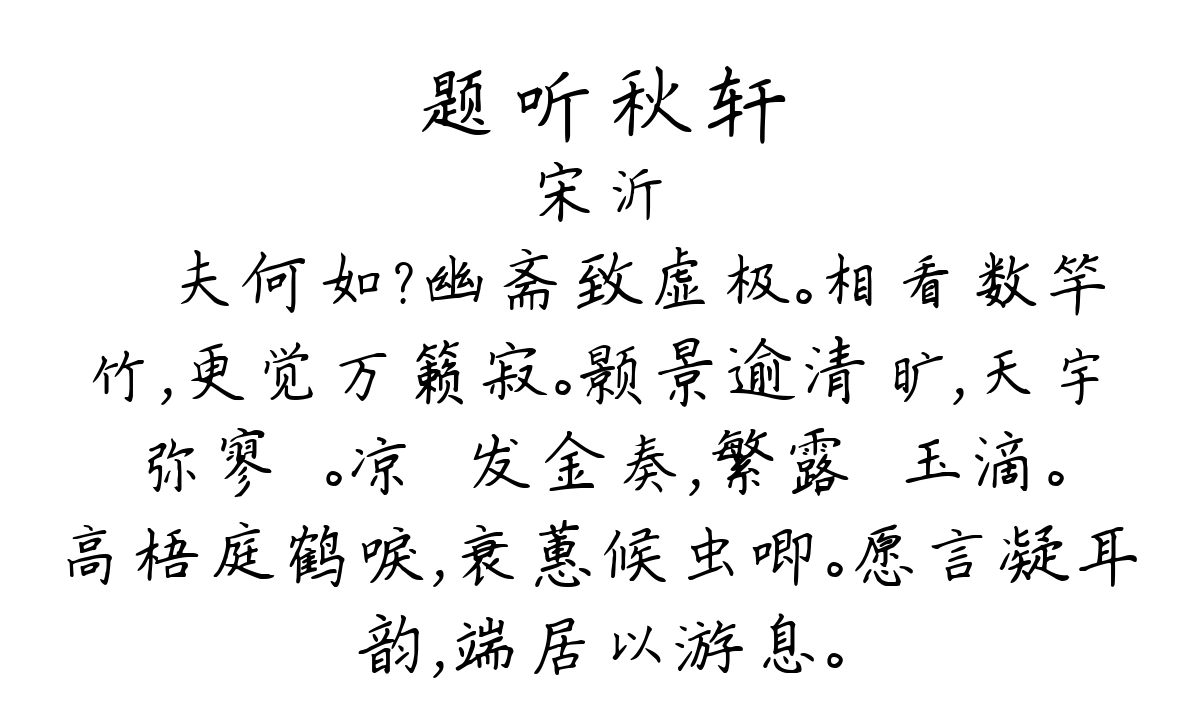 题听秋轩
宋沂
夫何如?幽斋致虚极。相看数竿
竹,更觉万籁寂。颢景逾清旷,天宇
弥寥 。凉 发金奏,繁露 玉滴。
高梧庭鹤唳,衰蕙候虫唧。愿言凝耳
韵,端居以游息。